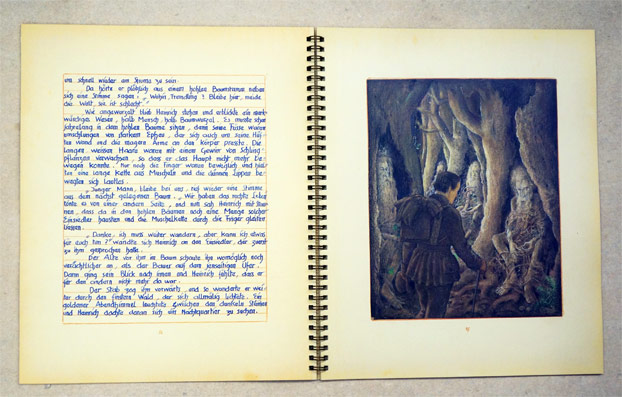 um schnell wieder am Strome zu sein.
Da hörte er plötzlich aus einem hohlen Baumstamm neben
sich eine Stimme sagen: „Wohin, Fremdling? Bleibe hier, meide
die Welt, sie ist schlecht."
Wie angewurzelt blieb Heinrich stehen und erblickte ein merk
würdiges Wesen, halb Mensch halb Baumwurzel. Es musste schon
jahrelang in dem hohlen Baume sitzen, denn seine Füsse waren
umschlungen von starkem Epheu, der sich auch um seine Hüf
ten wand und die magere Arme an den Körper presste. Die
langen, weissen Haare waren mit einem Gewirr von Schling
pflanzen verwachsen, so dass er das Haupt nicht mehr be
wegen konnte. Nur noch die Finger waren beweglich und hiel
ten eine lange Kette aus Muscheln und die dünnen Lippen be
wegten sich lautlos.
„Junger Mann, bleibe bei uns, rief wieder eine Stimme
aus dem nächst gelegenen Baum. „Wir haben das rechte Leben
tönte es von einer andern Seite, und nun sah Heinrich mit Stau
nen, dass da in den hohlen Bäumen noch eine Menge solcher
Einsiedler hausten und die Muschelkette durch die Finger gleiten
liessen.
„Danke, ich muss weiter wandern, aber kann ich etwas
für euch tun?" wandte sich Heinrich an den Einsiedler, der zuerst
zu ihm gesprochen hatte.
Der Alte vor ihm im Baum schaute ihn womöglich noch
verächtlicher an, als der Bauer auf dem jenseitigen Ufer.
Dann ging sein Blick nach innen und Heinrich fühlte, dass er
für den andern nicht mehr da war.
Der Stab zog ihn vorwärts, und so wanderte er wei
ter durch den finstern Wald, der sich allmählig lichtete. Ein
goldener Abendhimmel leuchtete zwischen den dunkeln Stämmen
und Heinrich dachte daran sich ein Nachtquartier zu suchen.